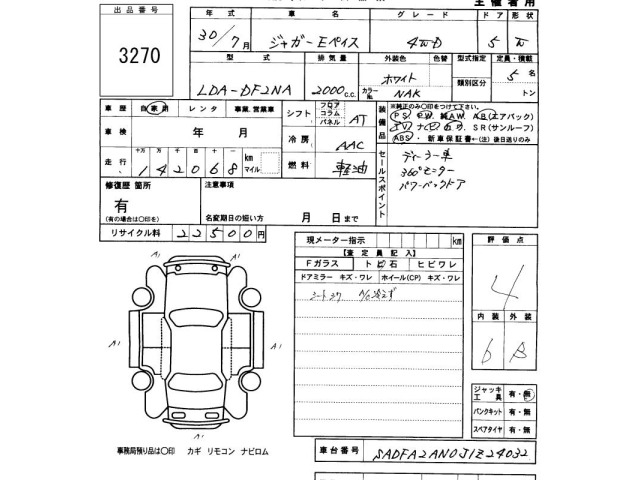 主催者用
出品番号
3270
年式 車名 グレード ドア 形状
30/7月 ジャガーEペイス 4WD 5
型式 排気量 外装色 色替 型式指定 定員・積載
LDA-DF2NA 2000c.c. ホワイト 5名
カラーNo. NAK 類別区分 トン
車歴 自家用 レンタ 事業、営業車
シフト フロア コラム パネル AT
装備品
※純正品のみ○印をつけて下さい。
PS PW 純AW AB(エアバック)
TV ナビ カワ SR(サンルーフ)
ABS 新車保証書←(注)後日送りのみ
車検 年 月
冷房 AAC
走行 十万 万 千 百 十 一
142068 km マイル
燃料 軽油
セールスポイント
ディーラー車
360°モニター
パワーバックドア
修復歴 箇所
有
(有の場合は○印を)
注意事項
名変期日の短い方 月 日まで
リサイクル料 22500円
現メーター指示 km
【査定員記入】
Fガラス トビ石 ヒビワレ
ドアミラー キズ・ワレ ホイール(CP) キズ・ワレ
シートスワ A/C冷えず
評価点
4
内装 外装
6 B
A1 A1
A1 A1
A1
ジャッキ工具 有・無
パンクキット 有・無
スペアタイヤ 有・無
事務局預り品は○印 カギ リモコン ナビロム
車台番号 SADFA2AN0J1Z24032